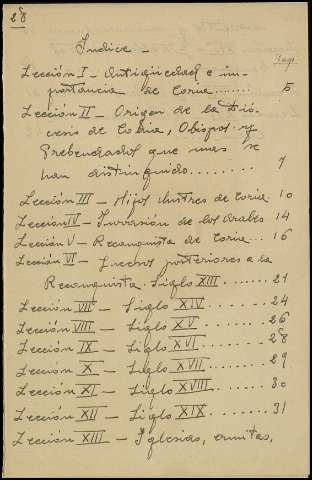 28
Indice -
Pag.
Lección I - Antigüedad e im-
portancia de Coria....... 5
Lección II - Origen de la Dió-
cesis de Coria, Obispos y
Prebendados que mas se
han distinguido........ 7
Lección III - Hijos ilustres de Coria. 10
Lección IV - Invasión de los Arabes 14
Lección V - Reconquista de Coria... 16
Lección VI - Sucesos posteriores a la
Reconquista. Siglo XIII....... 21
Lección VII - Siglo XIV....... 24
Lección VIII - Siglo XV....... 26
Lección IX - Siglo XVI....... 28
Lección X - Siglo XVII....... 29
Lección XI - Siglo XVIII...... 30
Lección XII - Siglo XIX....... 31
Lección XIII - Iglesias, ermitas,